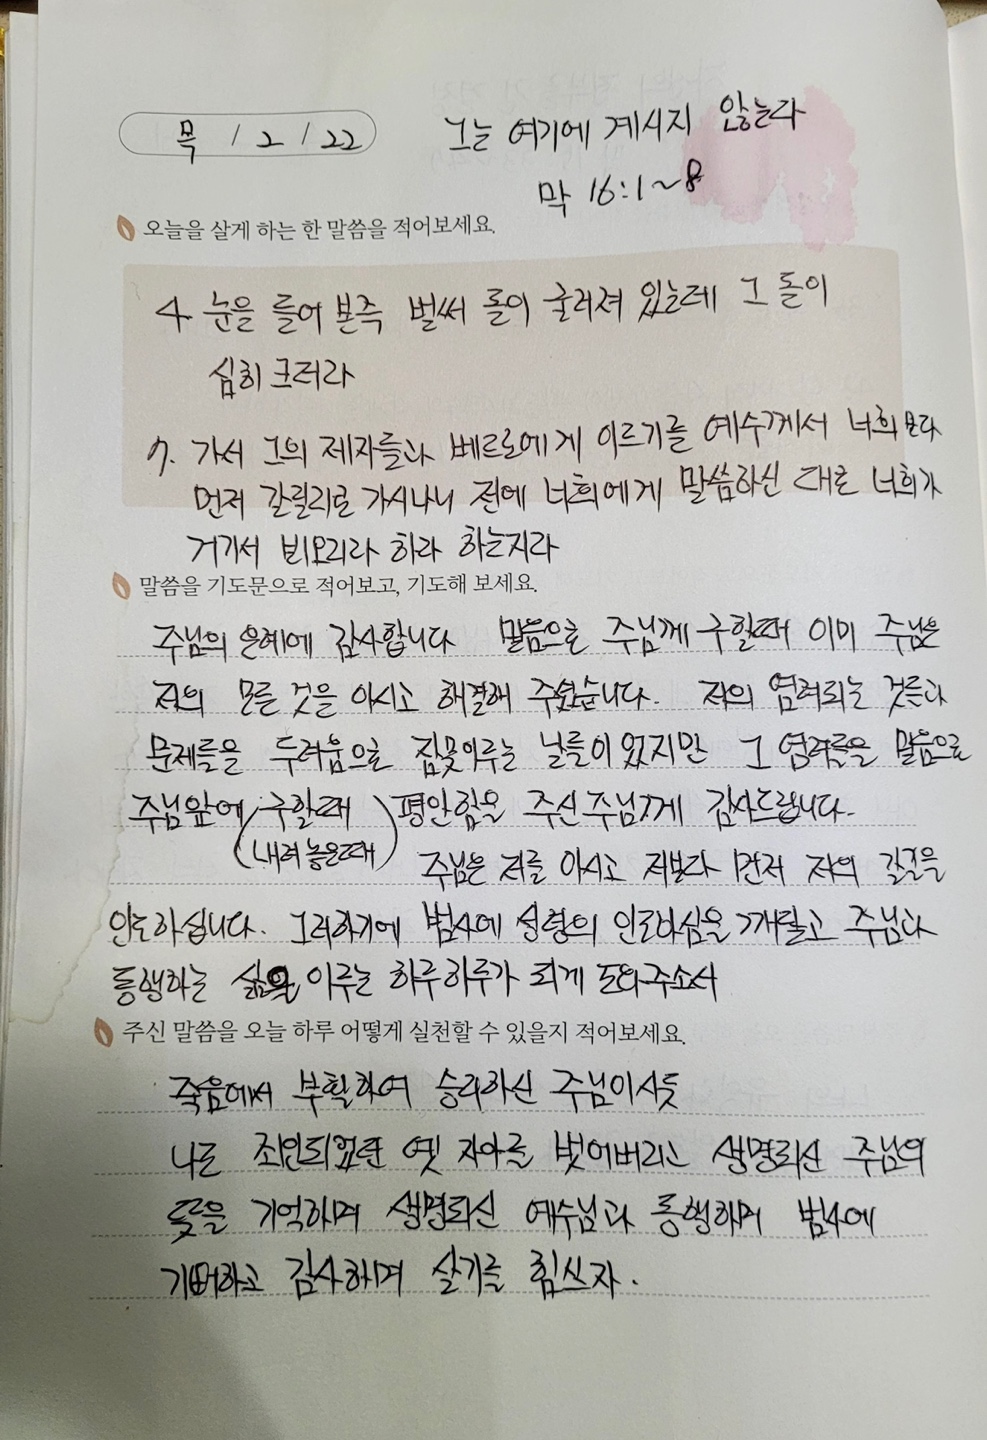 목 / 2 / 22
그는 여기에 계시지 않는다
막 16:1~8
오늘을 살게 하는 한 말씀을 적어보세요.
4. 눈을 들어 본즉 벌써 돌이 굴려져 있는데 그 돌이
심히 크더라
7. 가서 그의 제자들과 베드로에게 이르기를 예수께서 너희보다
먼저 갈릴리로 가시나니 전에 너희에게 말씀하신 대로 너희가
거기서 뵈오리라 하라 하는지라
말씀을 기도문으로 적어보고, 기도해 보세요.
주님의 은혜에 감사합니다 말씀으로 주님께 구할때 이미 주님은
저의 모든 것을 아시고 해결해 주셨습니다. 저의 염려되는 것들과
문제들을 두려움으로 잠못이루는 날들이 있지만 그 염려들을 말씀으로
주님앞에 구할때 평안함을 주신 주님께 감사드립니다.
(내려 놓은때)
주님은 저를 아시고 저보다 먼저 저의 갈길을
인도하십니다. 그러하기에 범사에 성령의 인도하심을 깨닫고 주님과
동행하는 삶을 이루는 하루하루가 되게 도와주소서
주신 말씀을 오늘 하루 어떻게 실천할 수 있을지 적어보세요.
죽음에서 부활하여 승리하신 주님이시듯
나도 죄인되었던 옛 자아를 벗어버리고 생명되신 주님의
뜻을 기억하며 생명되신 예수님과 동행하며 범사에
기뻐하고 감사하며 살기를 힘쓰자.